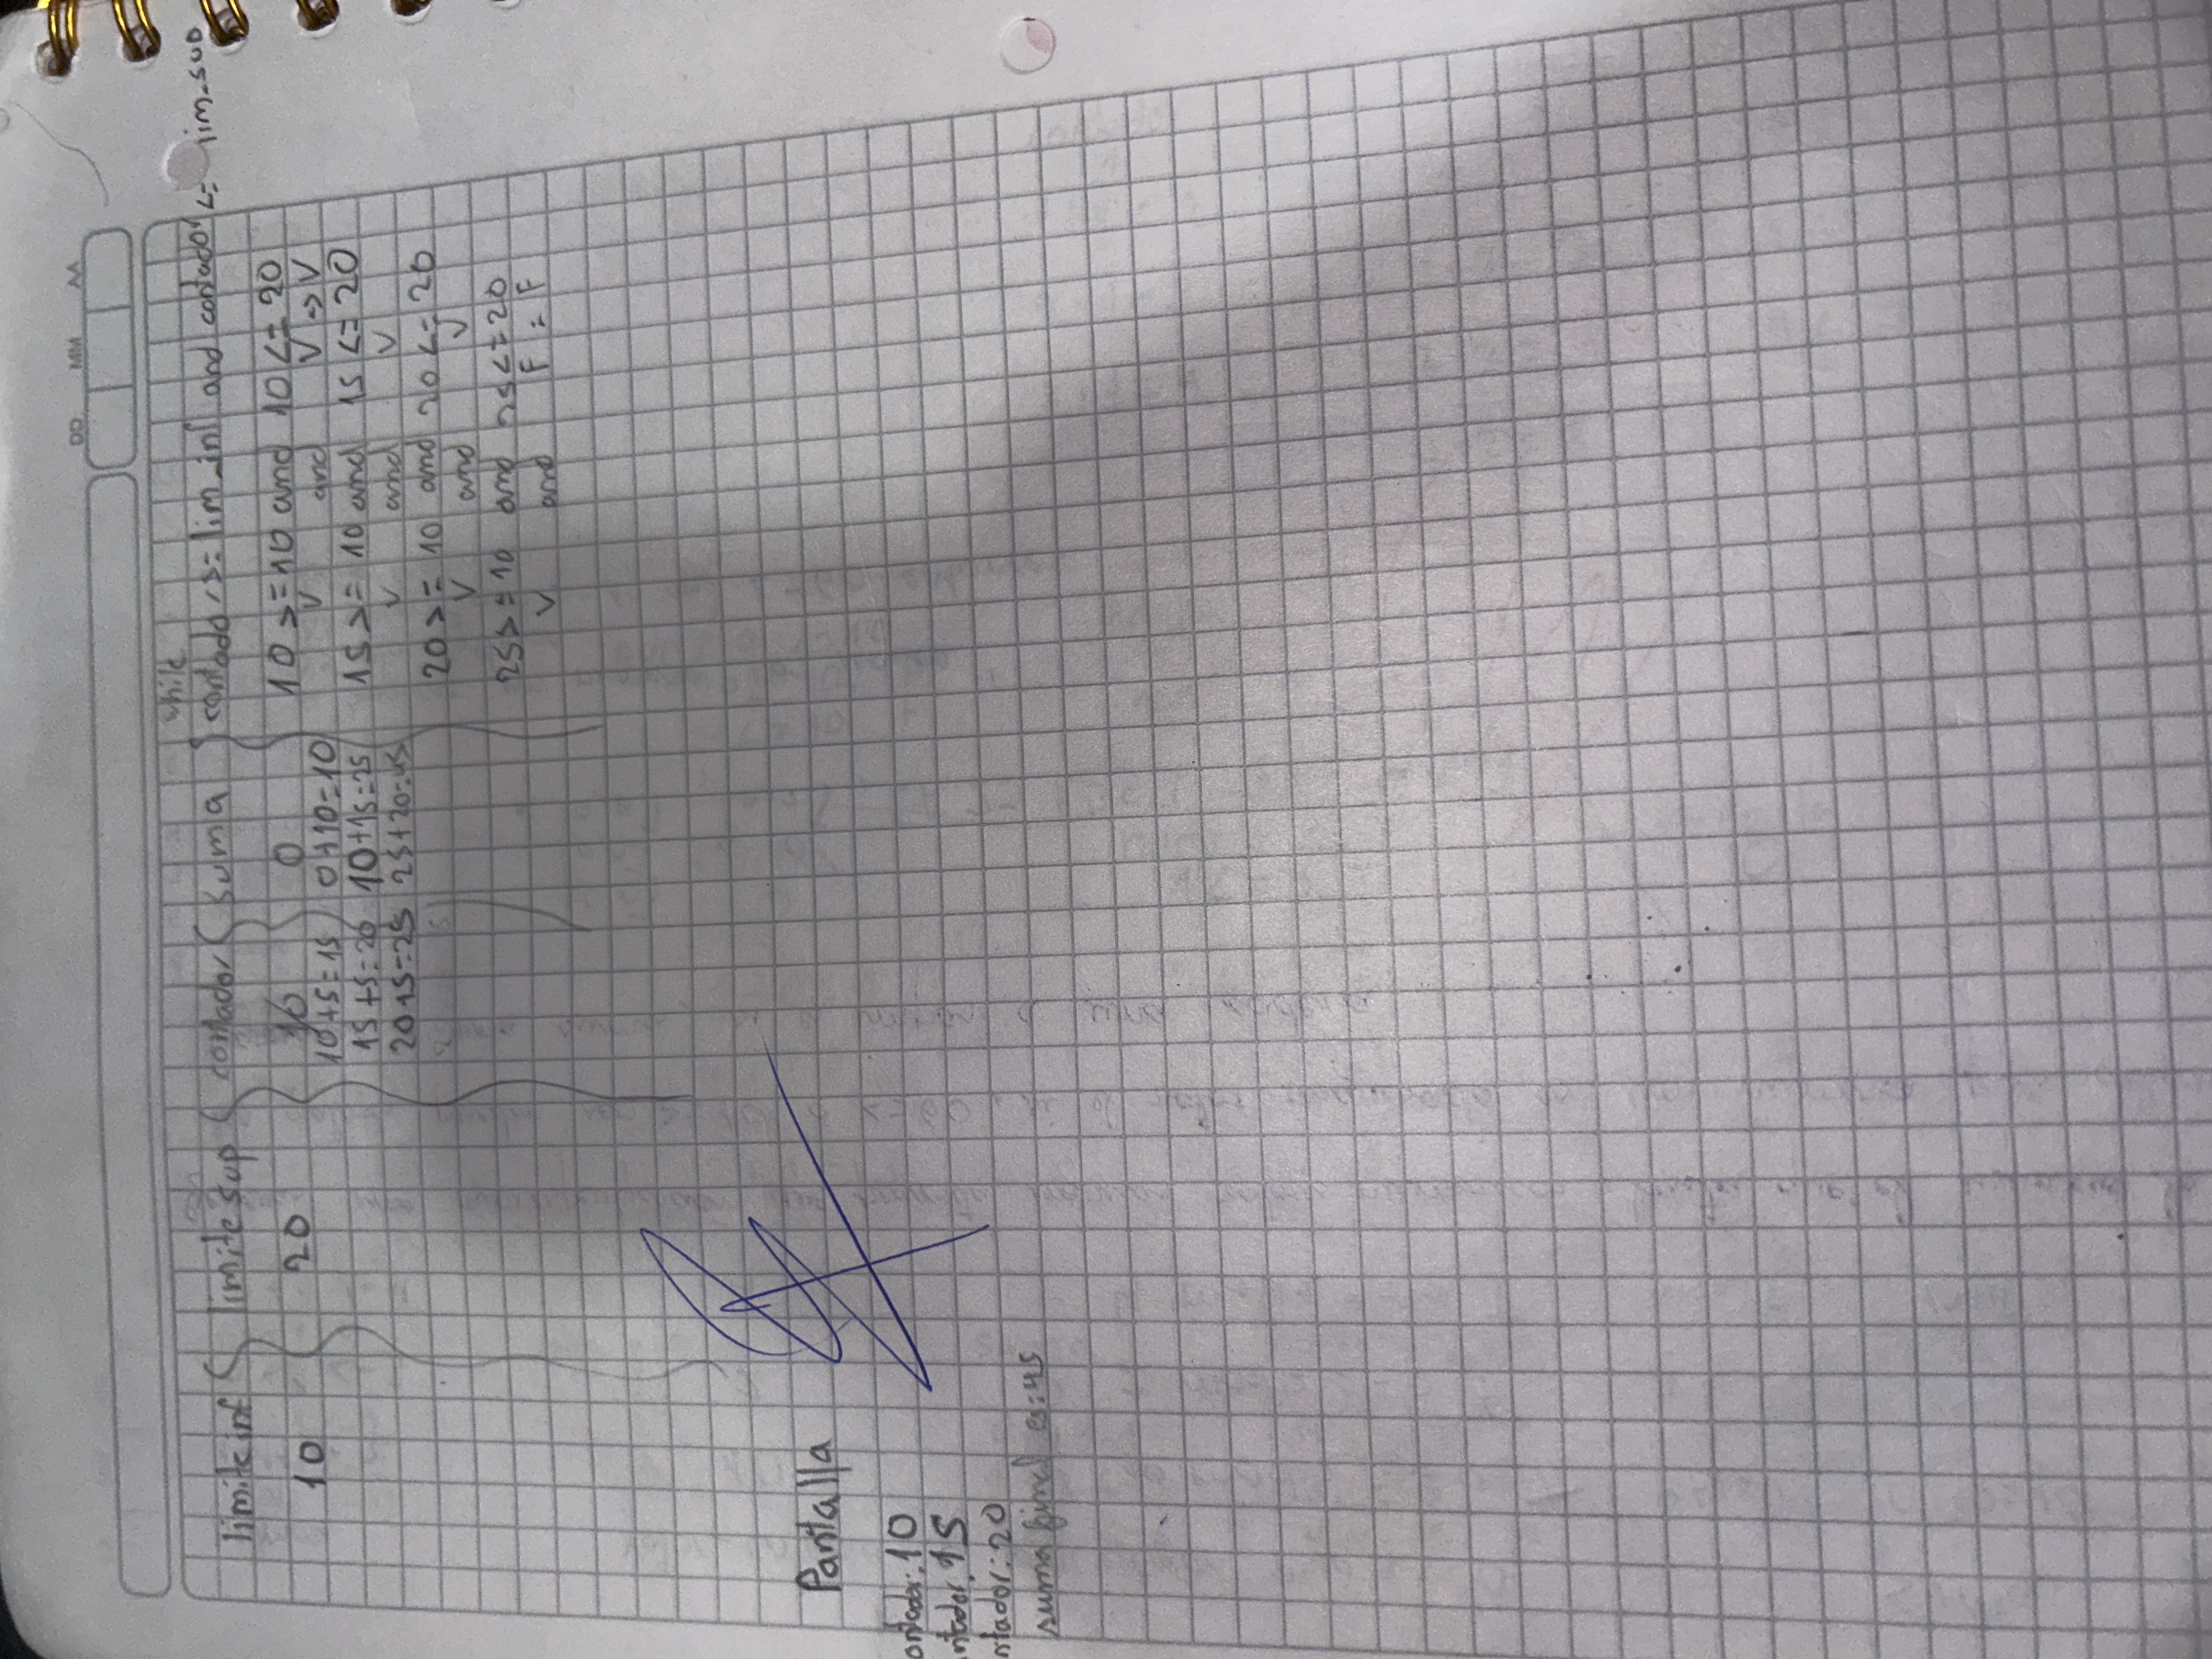 DD MM AA
while
limite inf limite sup contador suma contador >= lim_inf and contador <= lim_sup
10 20 10 0 10 >= 10 and 10 <= 20
10+5=15 0+10=10 V and V -> V
15+5=20 10+15=25 15 >= 10 and 15 <= 20
V and V
20+5=25 25+20=45 20 >= 10 and 20 <= 20
V and V
25 >= 10 and 25 <= 20
V and F = F
Pantalla
ontador: 10
ntador. 15
ntador: 20
suma final es: 45